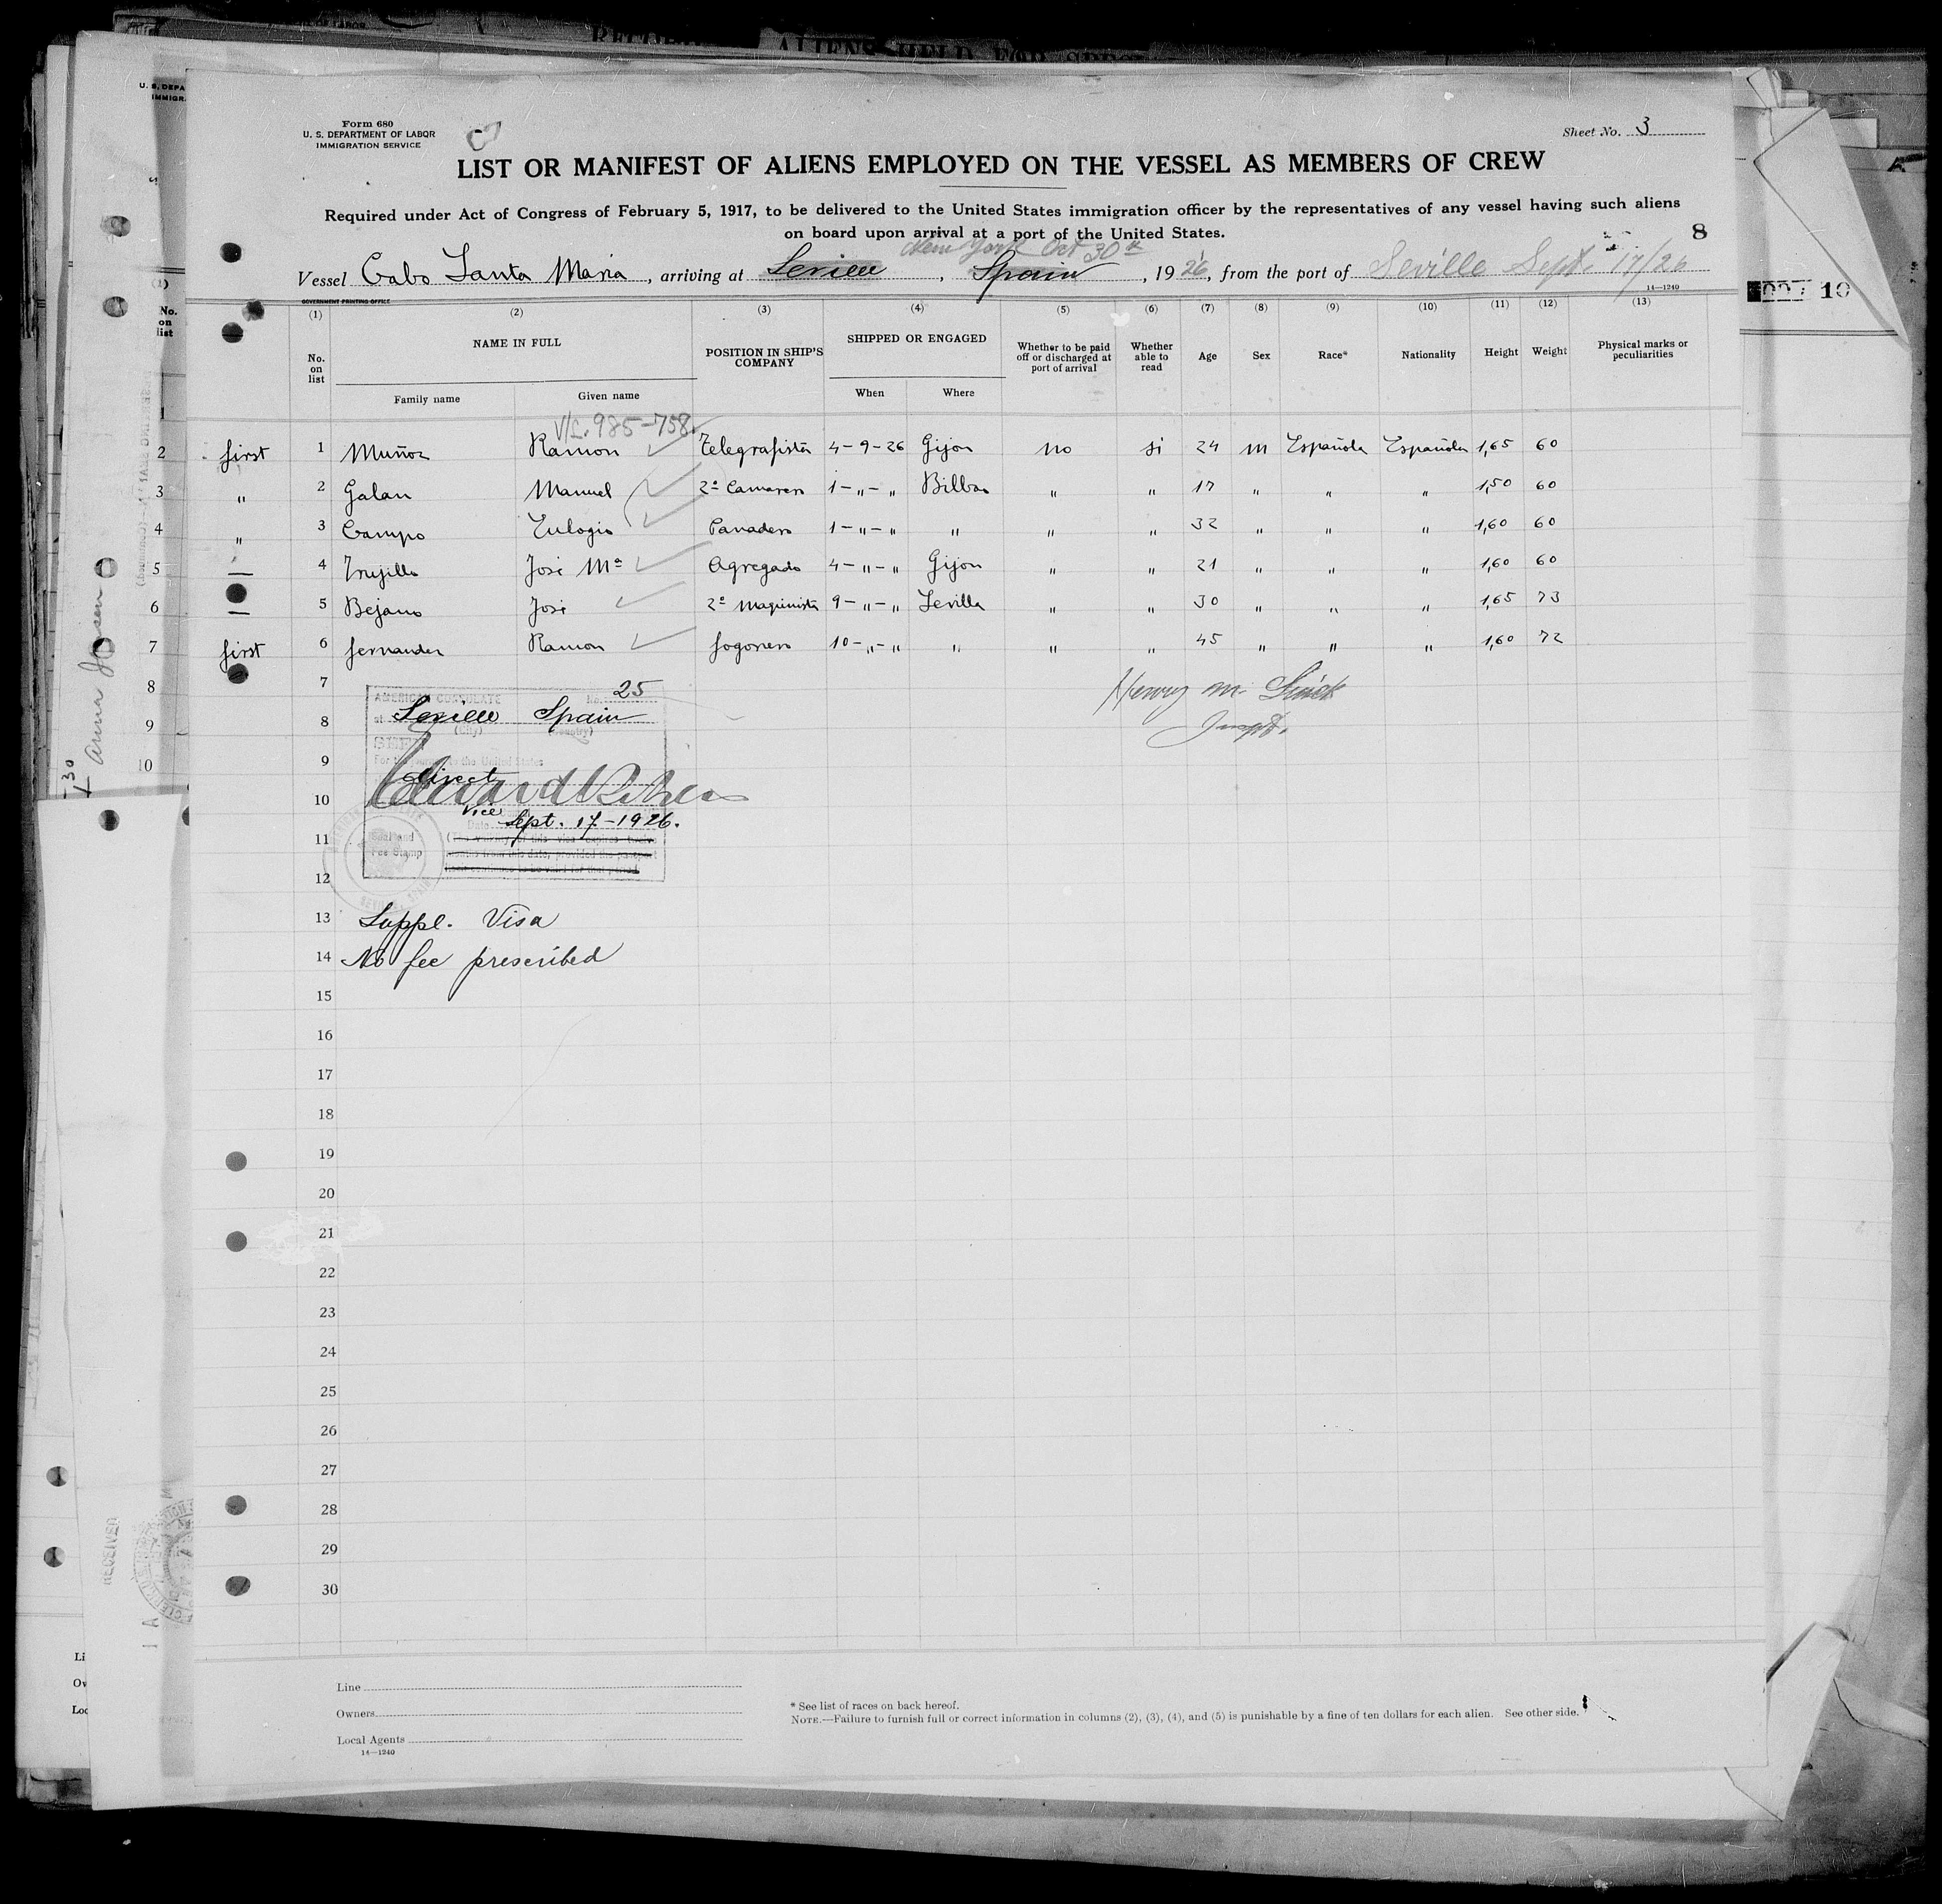 Form 680
U. S. DEPARTMENT OF LABOR
IMMIGRATION SERVICE
Sheet No. 3
LIST OR MANIFEST OF ALIENS EMPLOYED ON THE VESSEL AS MEMBERS OF CREW
Required under Act of Congress of February 5, 1917, to be delivered to the United States immigration officer by the representatives of any vessel having such aliens
on board upon arrival at a port of the United States.
8
New York Oct 30th
Vessel Cabo Santa Maria, arriving at Seville, Spain, 1926, from the port of Seville Sept. 17/26
GOVERNMENT PRINTING OFFICE
14—1240
(1) (2) (3) (4) (5) (6) (7) (8) (9) (10) (11) (12) (13)
No. on list NAME IN FULL POSITION IN SHIP'S COMPANY SHIPPED OR ENGAGED Whether to be paid off or discharged at port of arrival Whether able to read Age Sex Race* Nationality Height Weight Physical marks or peculiarities
Family name Given name When Where
V/L. 985-758.
first 1 Muñoz Ramon Telegrafista 4-9-26 Gijon no si 24 m Española Española 1,65 60
" 2 Galan Manuel 2º Camarero 1-"-" Bilbao " " 17 " " " 1,50 60
" 3 Campo Eulogio Panadero 1-"-" " " " 32 " " " 1,60 60
— 4 Trujillo José Mª Agregado 4-"-" Gijon " " 21 " " " 1,60 60
— 5 Bejano José 2º Maquinista 9-"-" Sevilla " " 30 " " " 1,65 73
first 6 fernandez Ramon fogonero 10-"-" " " " 45 " " " 1,60 72
7
AMERICAN CONSULATE No. 25
8
at Seville Spain
(City) (Country)
9
For the journey to the United States
direct
10
Vice
Date Sept. 17-1926.
11
Seal and
Fee Stamp
12
13 Suppl. Visa
14 No fee prescribed
15
16
17
18
19
20
21
22
23
24
25
26
27
28
29
30
Henry M.
Line
Owners
Local Agents
14—1240
* See list of races on back hereof.
NOTE.—Failure to furnish full or correct information in columns (2), (3), (4), and (5) is punishable by a fine of ten dollars for each alien. See other side.
No.
on
list
1
2
3
4
5
6
7
8
9
10
RECEIVED
10